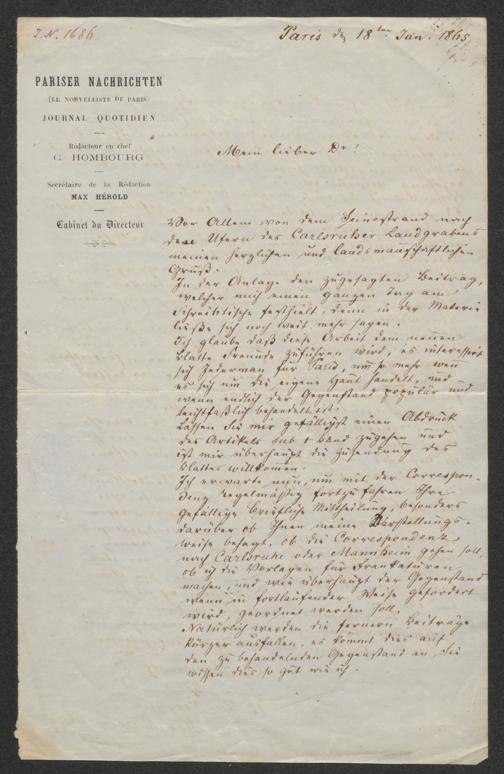 J. N. 1686
Paris d. 18ten Jan. 1865
PARISER NACHRICHTEN
(LE NOUVELLISTE DE PARIS)
JOURNAL QUOTIDIEN
Rédacteur en chef
C. HOMBOURG
Secrétaire de la Rédaction
MAX HÉROLD
Cabinet du Directeur
Mein lieber Dr!
Vor Allem von dem Seinestrand nach
den Ufern des Carlsruher Landgrabens
meinen herzlichen und landsmannschaftlichen
Gruß.
In der Anlage den zugesagten Beitrag,
welcher mich einen ganzen Tag am
Schreibtische festhielt, denn in der Materie
ließe sich noch weit mehr sagen.
Ich glaube daß diese Arbeit dem neuen
Blatte Freunde zuführen wird, es interessirt
sich Jedermann für Paris, um so mehr wenn
es sich um die eigene Haut handelt, und
wenn endlich der Gegenstand populär und
leichtfaßlich behandelt ist.
Lassen Sie mir gefälligst einen Abdruck
des Artikels sub band zugehen und
ist mir überhaupt die Zusendung des
Blattes willkommen.
Ich erwarte nun, um mit der Correspon-
denz regelmäßig fortzufahren Ihre
gefällige briefliche Mittheilung, besonders
darüber ob Ihnen meine Darstellungs-
weise behagt, ob die Correspondenz
nach Carlsruhe oder Mannheim gehen soll,
ob ich die Vorlagen für Frankaturen
machen, und wie überhaupt der Gegenstand
wenn in fortlaufender Weise gefordert
wird, geordnet werden soll.
Natürlich werden die fernern Beiträge
kürzer ausfallen, es kommt dies auf
den zu behandelnden Gegenstand an, Sie
wissen dies so gut wie ich.